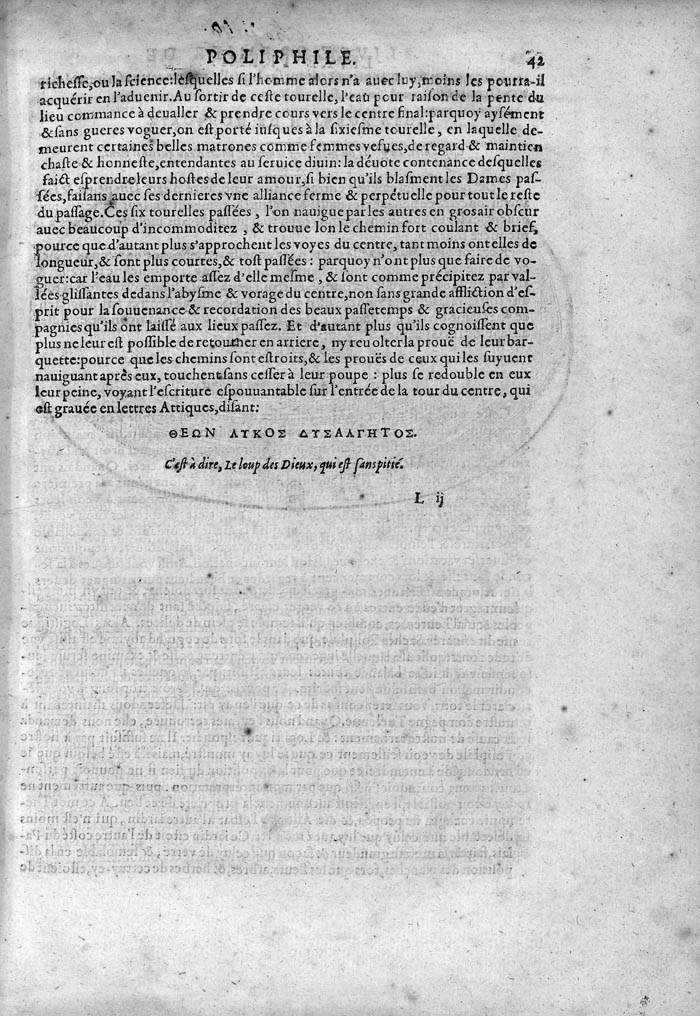 POLIPHILE. 42
richesse, ou la science: lesquelles si l'homme alors n'a auec luy, moins les pourra-il
acquérir en l'aduenir. Au sortir de ceste tourelle, l'eau pour raison de la pente du
lieu commance à deualler & prendre cours vers le centre final: parquoy aysément
& sans gueres voguer, on est porté iusques à la sixiesme tourelle, en laquelle de-
meurent certaines belles matrones comme femmes vefues, de regard & maintien
chaste & honneste, entendantes au seruice diuin: la déuote contenance desquelles
faict esprendre leurs hostes de leur amour, si bien qu'ils blasment les Dames pas-
sées, faisans auec ses dernieres vne alliance ferme & perpétuelle pour tout le reste
du passage. Ces six tourelles passées, l'on nauigue par les autres en gros air obscur
auec beaucoup d'incommoditez, & trouue lon le chemin fort coulant & brief,
pource que d'autant plus s'approchent les voyes du centre, tant moins ont elles de
longueur, & sont plus courtes, & tost passées: parquoy n'ont plus que faire de vo-
guer: car l'eau les emporte assez d'elle mesme, & sont comme précipitez par val-
lées glissantes dedans l'abysme & vorage du centre, non sans grande affliction d'es-
prit pour la souuenance & recordation des beaux passetemps & gracieuses com-
pagnies qu'ils ont laissé aux lieux passez. Et d'autant plus qu'ils cognoissent que
plus ne leur est possible de retourner en arriere, ny reuolter la prouë de leur bar-
quette: pource que les chemins sont estroits, & les prouës de ceux qui les suyuent
nauiguant après eux, touchent sans cesser à leur poupe: plus se redouble en eux
leur peine, voyant l'escriture espouuantable sur l'entrée de la tour du centre, qui
est grauée en lettres Attiques, disant:
ΘΕΩΝ ΛΥΚΟΣ ΔΥΣΑΛΓΗΤΟΣ.
C'est à dire, Le loup des Dieux, qui est sans pitié.
L ij